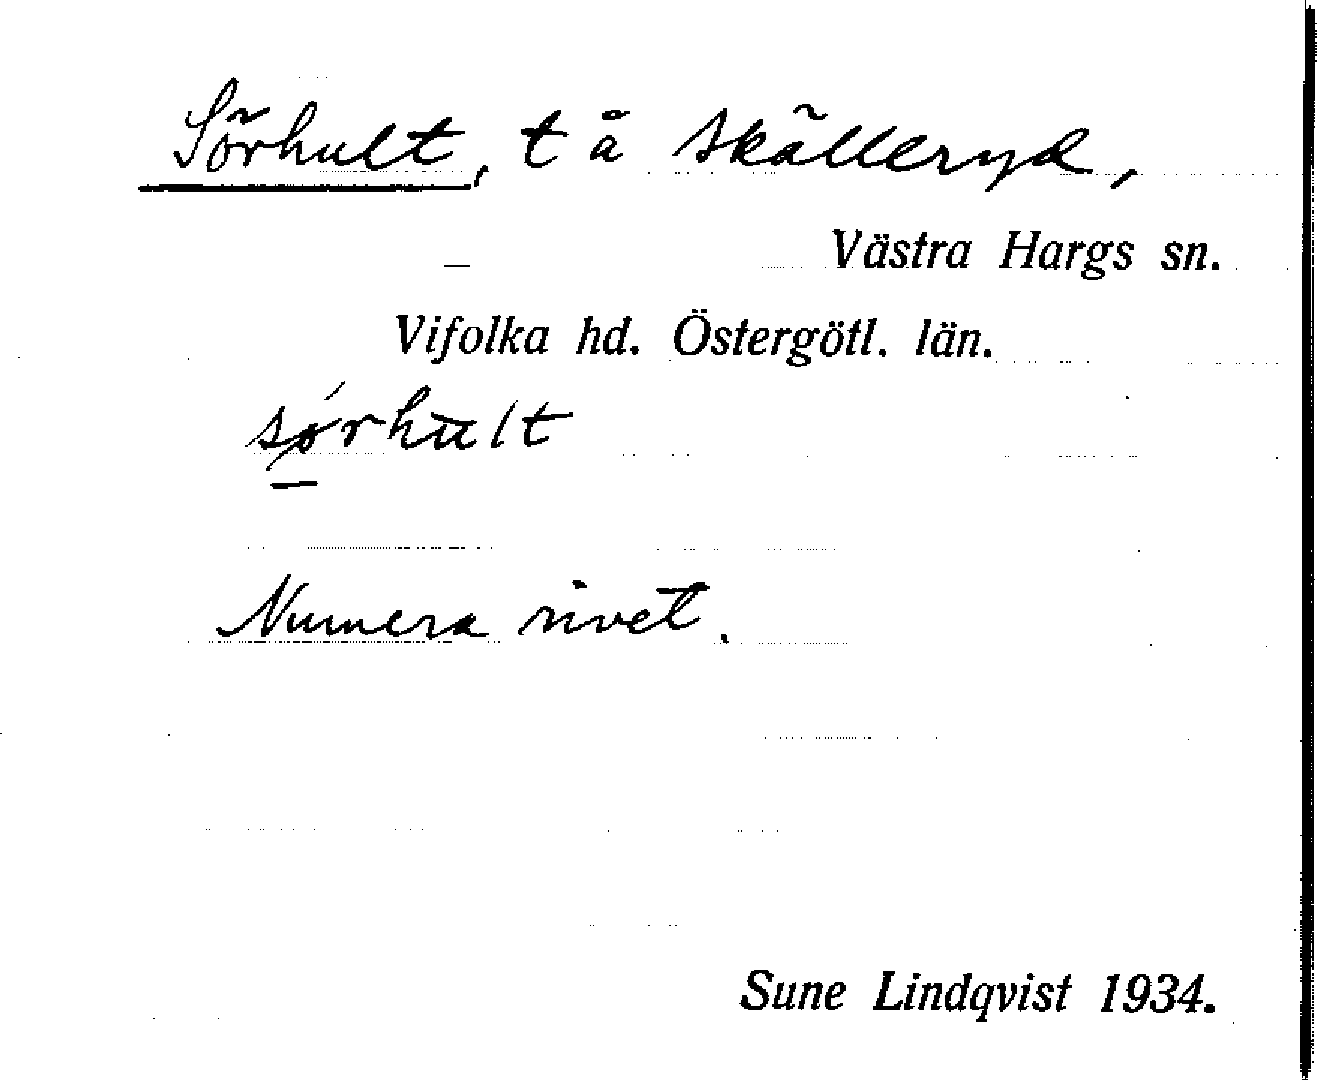 Sörhult, t å Skälleryd,
Västra Hargs sn.
Vifolka hd. Östergötl. län.
sǿrhult
Numera rivet.
Sune Lindqvist 1934.